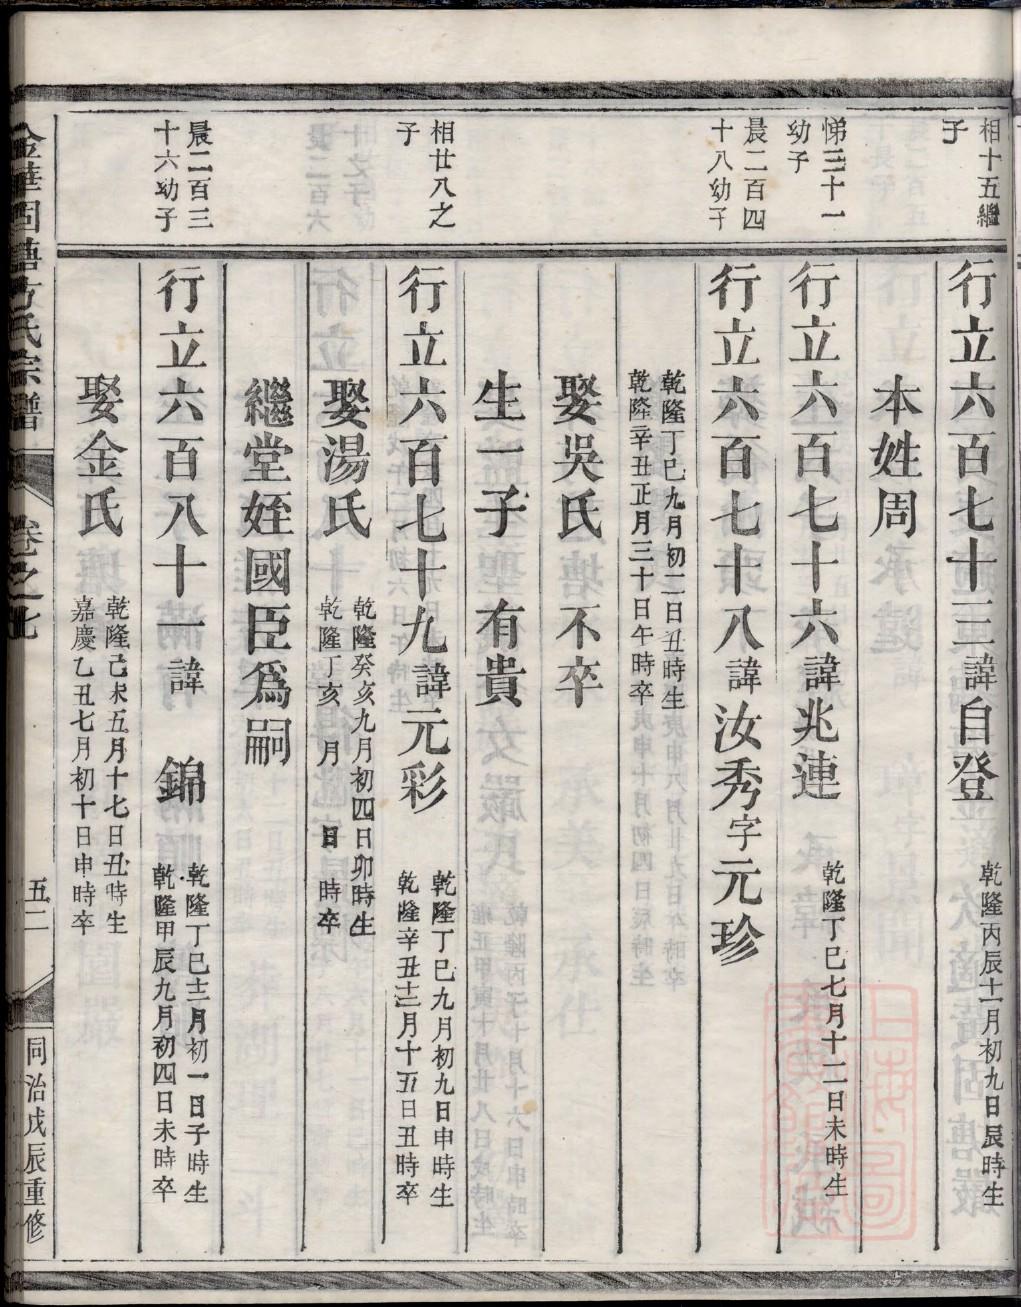 相十五繼
子
行立六百七十三諱自登
乾隆丙辰十一月初九日辰時生
本姓周
悌三十一
幼子
行立六百七十六諱兆連
乾隆丁巳七月十二日未時生
晨二百四
十八幼子
行立六百七十八諱汝秀字元珍
乾隆丁巳九月初二日丑時生
乾隆辛丑正月三十日午時卒
娶吳氏不卒
生一子有貴
相廿八之
子
行立六百七十九諱元彩
乾隆丁巳九月初九日申時生
乾隆辛丑十二月十五日丑時卒
娶湯氏
乾隆癸亥九月初四日卯時生
乾隆丁亥 月 日 時卒
繼堂姪國臣爲嗣
晨二百三
十六幼子
行立六百八十一諱 錦
乾隆丁巳十二月初一日子時生
乾隆甲辰九月初四日未時卒
娶金氏
乾隆己未五月十七日丑時生
嘉慶乙丑七月初十日申時卒
金華固塘方氏宗譜
卷之七
五二
同治戊辰重修